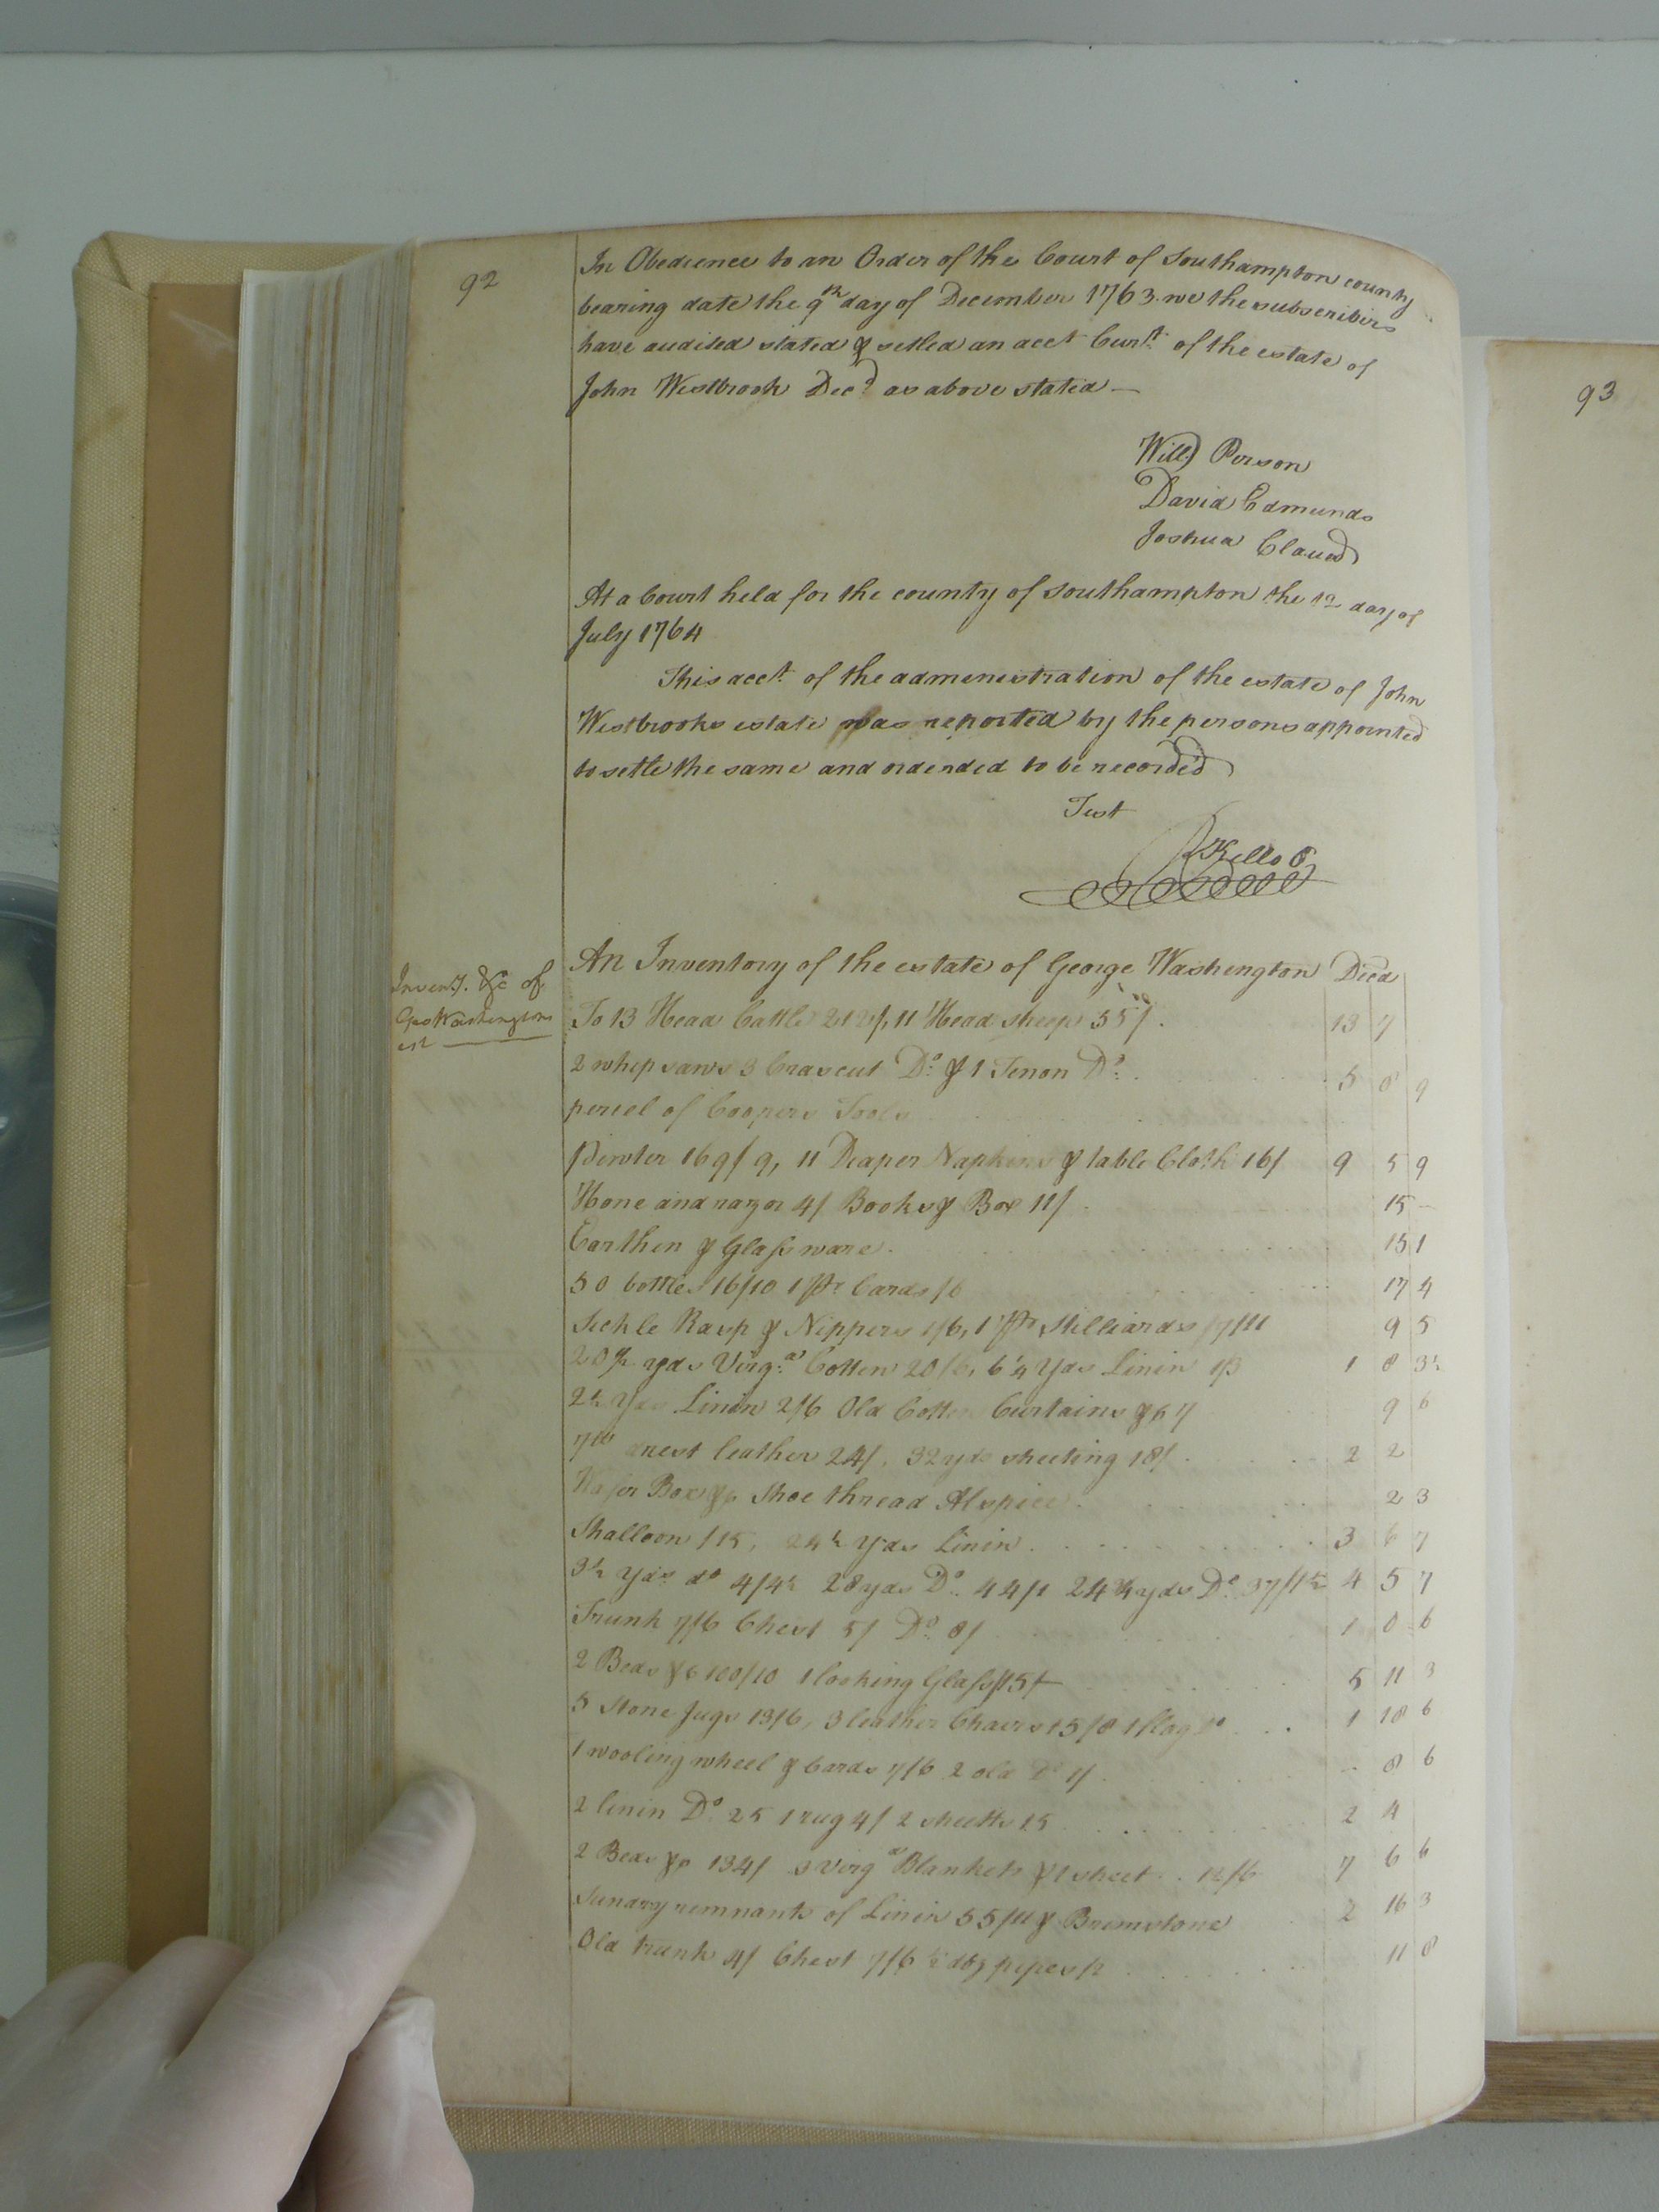 92
In Obedience to an Order of the Court of Southampton county
bearing date the 9th day of December 1763 we the subscribers
have audited stated & setled an acct Curt. of the estate of
John Westbrook Decd as above stated —
Will) Person
David Edmunds
Joshua Claud
At a Court held for the county of Southampton the 12 day of
July 1764
This acct. of the administration of the estate of John
Westbrooks estate was reported by the persons appointed
to settle the same and ordended to be recorded
Test
RKello C
Invent. &c of
Geo Washingtons
est
An Inventory of the estate of George Washington Decd
To 13 Head Cattle 212/, 11 Head sheep 55/. 13 7
2 whip saws 3 Crascut Do. & 1 Tenon Do. 5 8 9
percel of Coopers Tools
Pewter 169/9, 11 Deaper Napkins & table Cloth 16/ 9 5 9
Hone and razor 4/ Books & Box 11/. 15 —
Earthen & Glass ware. 15 1
50 bottles 16/10 1 pr Cards /6 17 4
Sickle Rasp & Nippers 1/6, 1 pr Stilliards 7/11 9 5
20½ yds Virga. Cotten 20/6, 6¼ Yds Linin 1 8 3½
2½ Yds Linin 2/6 Old Cotten Curtains &c 7 9 6
7lb leather 24/, 32 yds sheeting 18/. 2 2
Wafer Box &c Shoe thread Alspice. 2 3
Shalloon /15, 24½ Yds Linin. 3 6 7
3½ Yds. do 4/4½ 28 yds Do. 44/1 24¾ yds Do 37/1½ 4 5 7
Trunk 7/6 Chest 5/ Do. 8/ 1 0 6
2 Beds &c 100/10 1 looking Glass 5 11 3
5 Stone Jugs 13/6, 3 leather Chairs 15/8 1 flag Do 1 10 6
1 wooling wheel & Cards 7/6 2 old Do 1/. 8 6
2 linin Do 25 1 rug 4/ 2 sheetts 15 2 4
2 Beds &c 134/ 3 Virga Blankets & 1 sheet. 12/6 7 6 6
Sundry remnants of Linin 55/11 & Brimstone 2 16 3
Old trunk 4/ Chest 7/6 ½ doz pipes /2 11 8
93